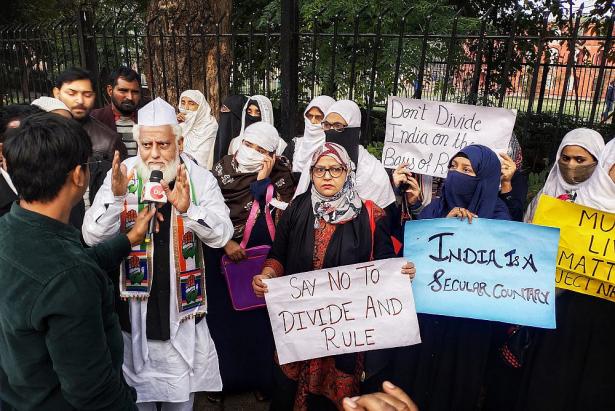 Don't Divide
India on the
Bays of R
SAY NO TO
DIVIDE AND
RULE
INDIA IS A
SECULAR COUNTARY
MU
LIV
MATTE
JECT NR